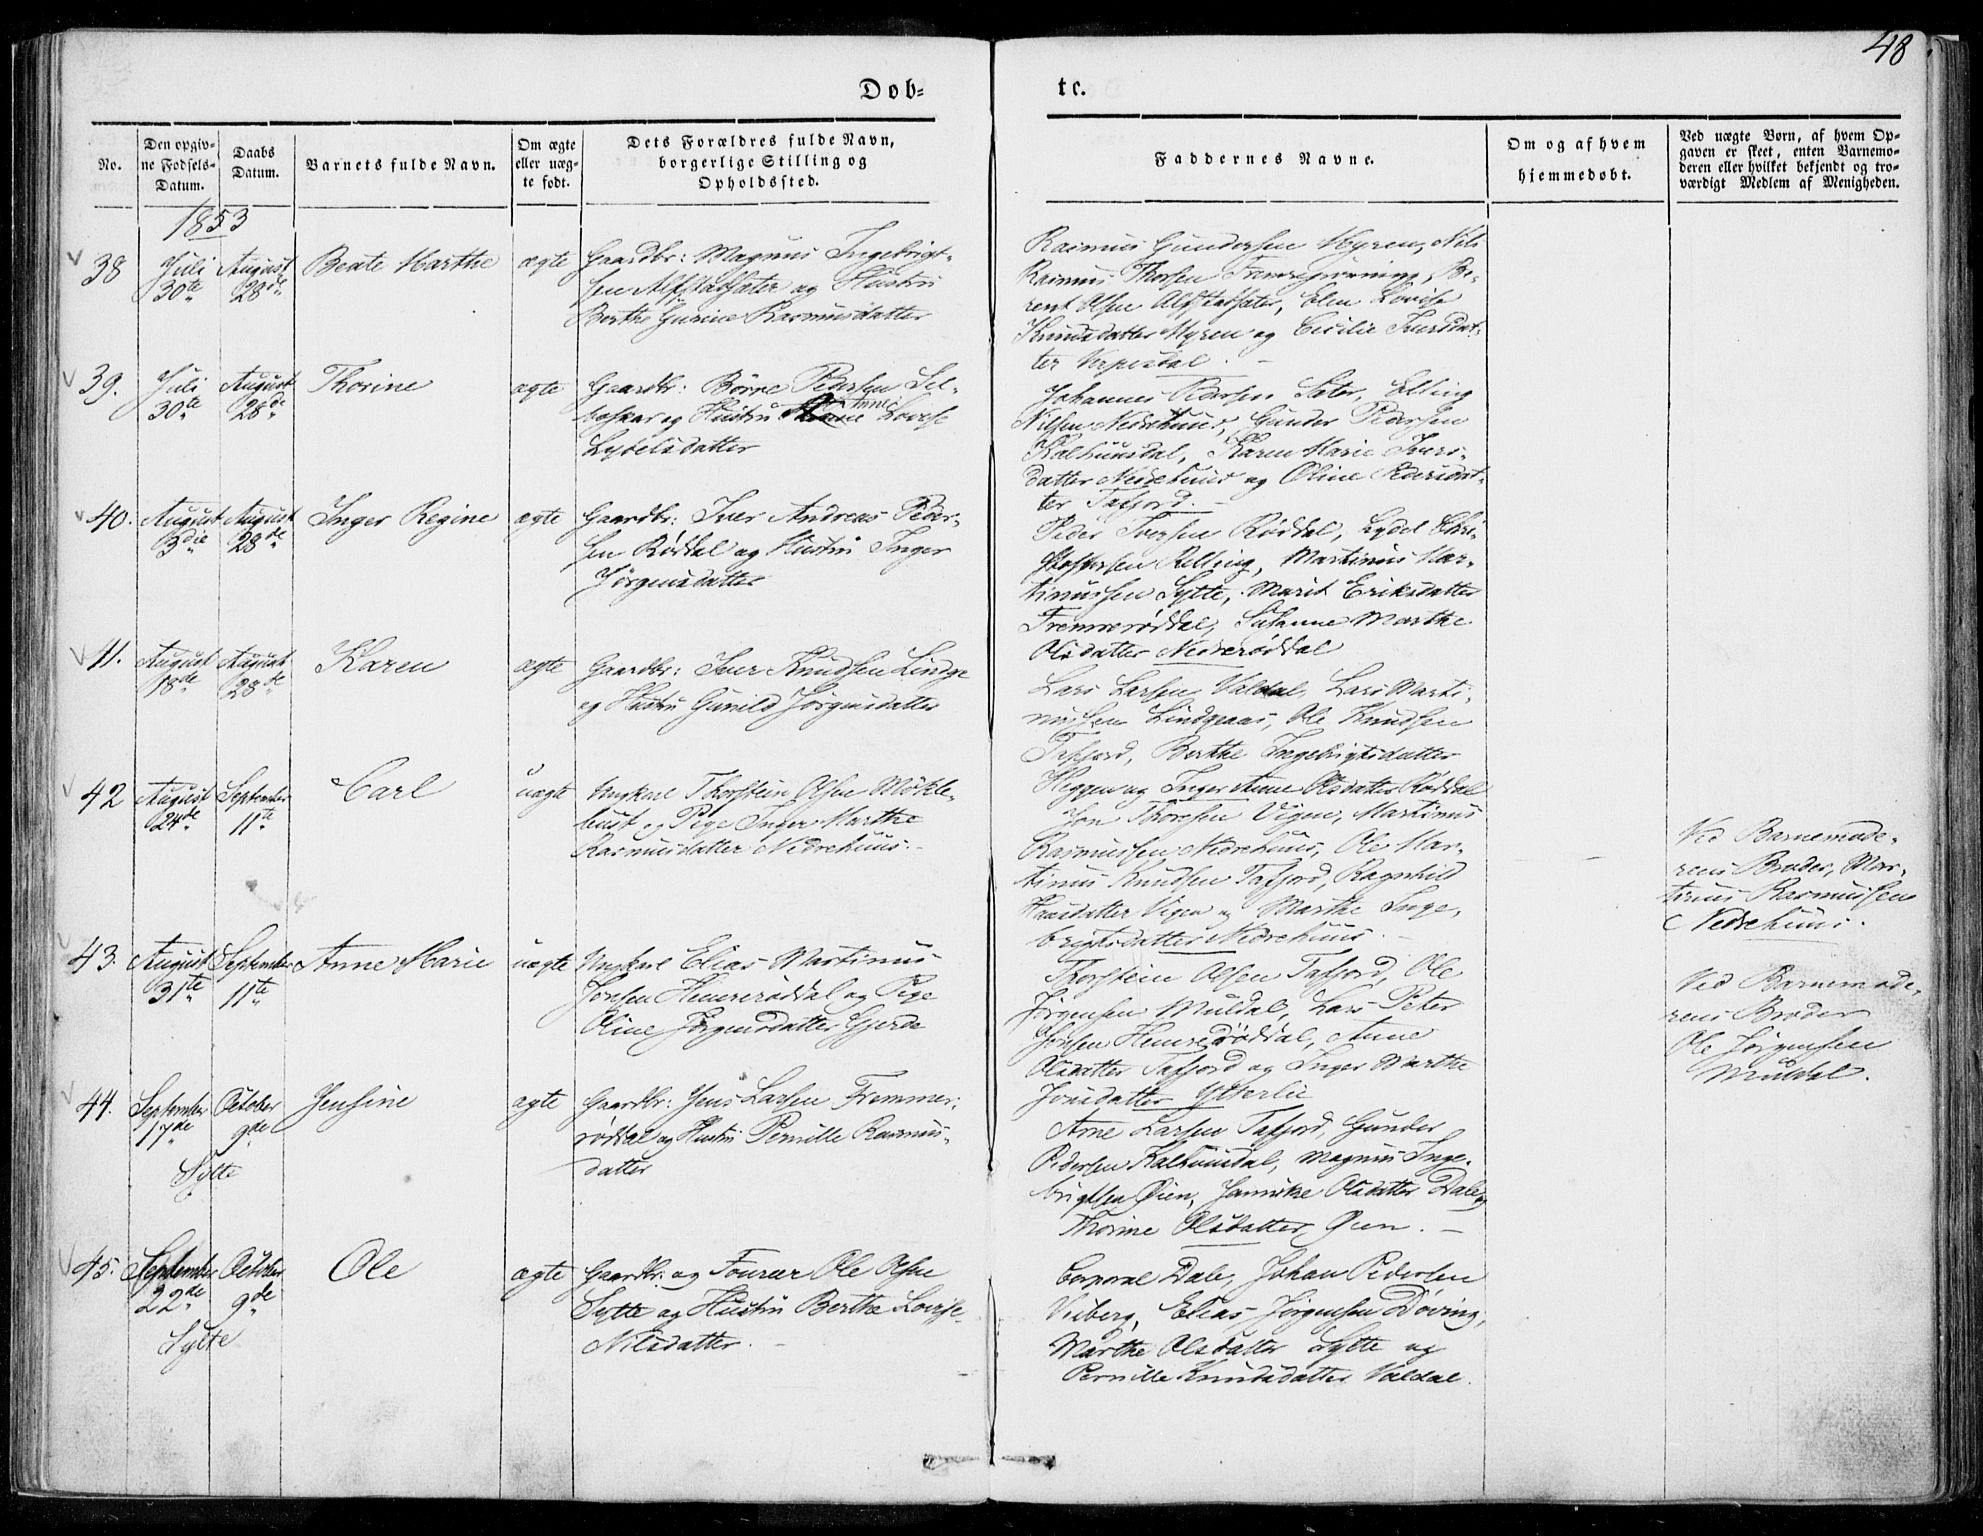 48
Døb-
te.
No.
Den opgiv-
ne Fødsels-
Datum.
Daabs
Datum.
Barnets fulde Navn.
Om ægte
eller uæg-
te født.
Dets Forældres fulde Navn,
borgerlige Stilling og
Opholdssted.
Faddernes Navne.
Om og af hvem
hjemmedøbt.
Ved uægte Børn, af hvem Op-
gaven er skeet, enten Barnemo-
deren eller hvilket bekjendt og tro-
værdigt Medlem af Menigheden.
1853
38
Juli
30te
August
28de
Beate Marthe
ægte
Gaardbr: Magnus Ingebrigt-
sen Alfstadsæter og Hustru
Berthe Gurine Rasmusdatter
Rasmus Gundersen Myren, Nils
Rasmus Thorsen Fremregrønning, Be-
rent Olsen Alfstadsæter, Elen Lovise
Knudsdatter Myren og Cicilie Iversdat-
ter Verpesdal.
39.
Juli
30te
August
28de
Thorine
ægte
Gaardbr: Børre Pedersen Sel-
boskar og Hustru Anne Lovise
Lydelsdatter
Johannes Pedersen Sæter, Elling
Nilsen Nedrehuus, Gunder Pedersen
Kalhuusdal, Karen Marie Ivers-
datter Nedrehuus og Oline Pedersdat-
ter Tafjord.
40.
August
3die
August
28de
Inger Regine
ægte
Gaardbr: Iver Andreas Peder-
sen Røddal og Hustru Inger
Jørgensdatter
Peder Iversen Røddal, Lydel Chri-
stophersen Relling, Martinus Mar-
tinussen Sylte, Marit Eriksdatter
Fremrerøddal, Susanne Marthe
Olsdatter Nedrerøddal
41.
August
18de
August
28de
Karen
ægte
Gaardbr: Iver Knudsen Lindge
og Hustru Gunild Jørgensdatter
Lars Larsen Valdal, Lars Marti-
nussen Lindgeaas, Ole Knudsen
Tafjord, Berthe Ingebrigtsdatter
Heggen og Inger Anne Olsdatter Røddal
42
August
24de
September
11te
Carl
uægte
Ungkarl Thorstein Olsen Møkle-
bust og Pige Inger Marthe
Rasmusdatter Nedrehuus.
Jon Thoresen Vigen, Martinus
Rasmussen Nedrehuus, Ole Mar-
tinus Knudsen Tafjord, Ragnhild
Hansdatter Vigen og Marthe Inge-
brigtsdatter Nedrehuus.
Ved Barnemode-
rens Broder, Mar-
tinus Rasmussen
Nedrehuus.
43.
August
31te
September
11te
Anne Marie
uægte
Ungkarl Elias Martinus
Jonsen Heimrerøddal og Pige
Oline Jørgensdatter Gjerde
Thorstein Olsen Tafjord, Ole
Jørgensen Muldal, Lars Peter
Jonsen Heimrerøddal, Anne
Olsdatter Tafjord og Inger Marthe
Jonsdatter Ytterlie
Ved Barnemode-
rens Broder
Ole Jørgensen
Muldal.
44.
September
17de
October
9de
Sylte
Jensine
ægte
Gaardbr: Jens Larsen Fremmer-
røddal og Hustru Pernille Rasmus-
datter
Arne Larsen Tafjord, Gunder
Pedersen Kalhuusdal, Magnus Inge-
brigtsen Øien, Jannike Olsdatter Dale og
Thorine Olsdatter Øien.
45.
September
22de
October
9de
Sylte
Ole
ægte
Gaardbr: og Fourer Ole Olsen
Sylte og Hustru Berthe Lovise
Nilsdatter.
Corporal Dale, Johan Pedersen
Viiberg, Elias Jørgensen Døving,
Marthe Olsdatter Sylte og
Pernille Knudsdatter Valdal.